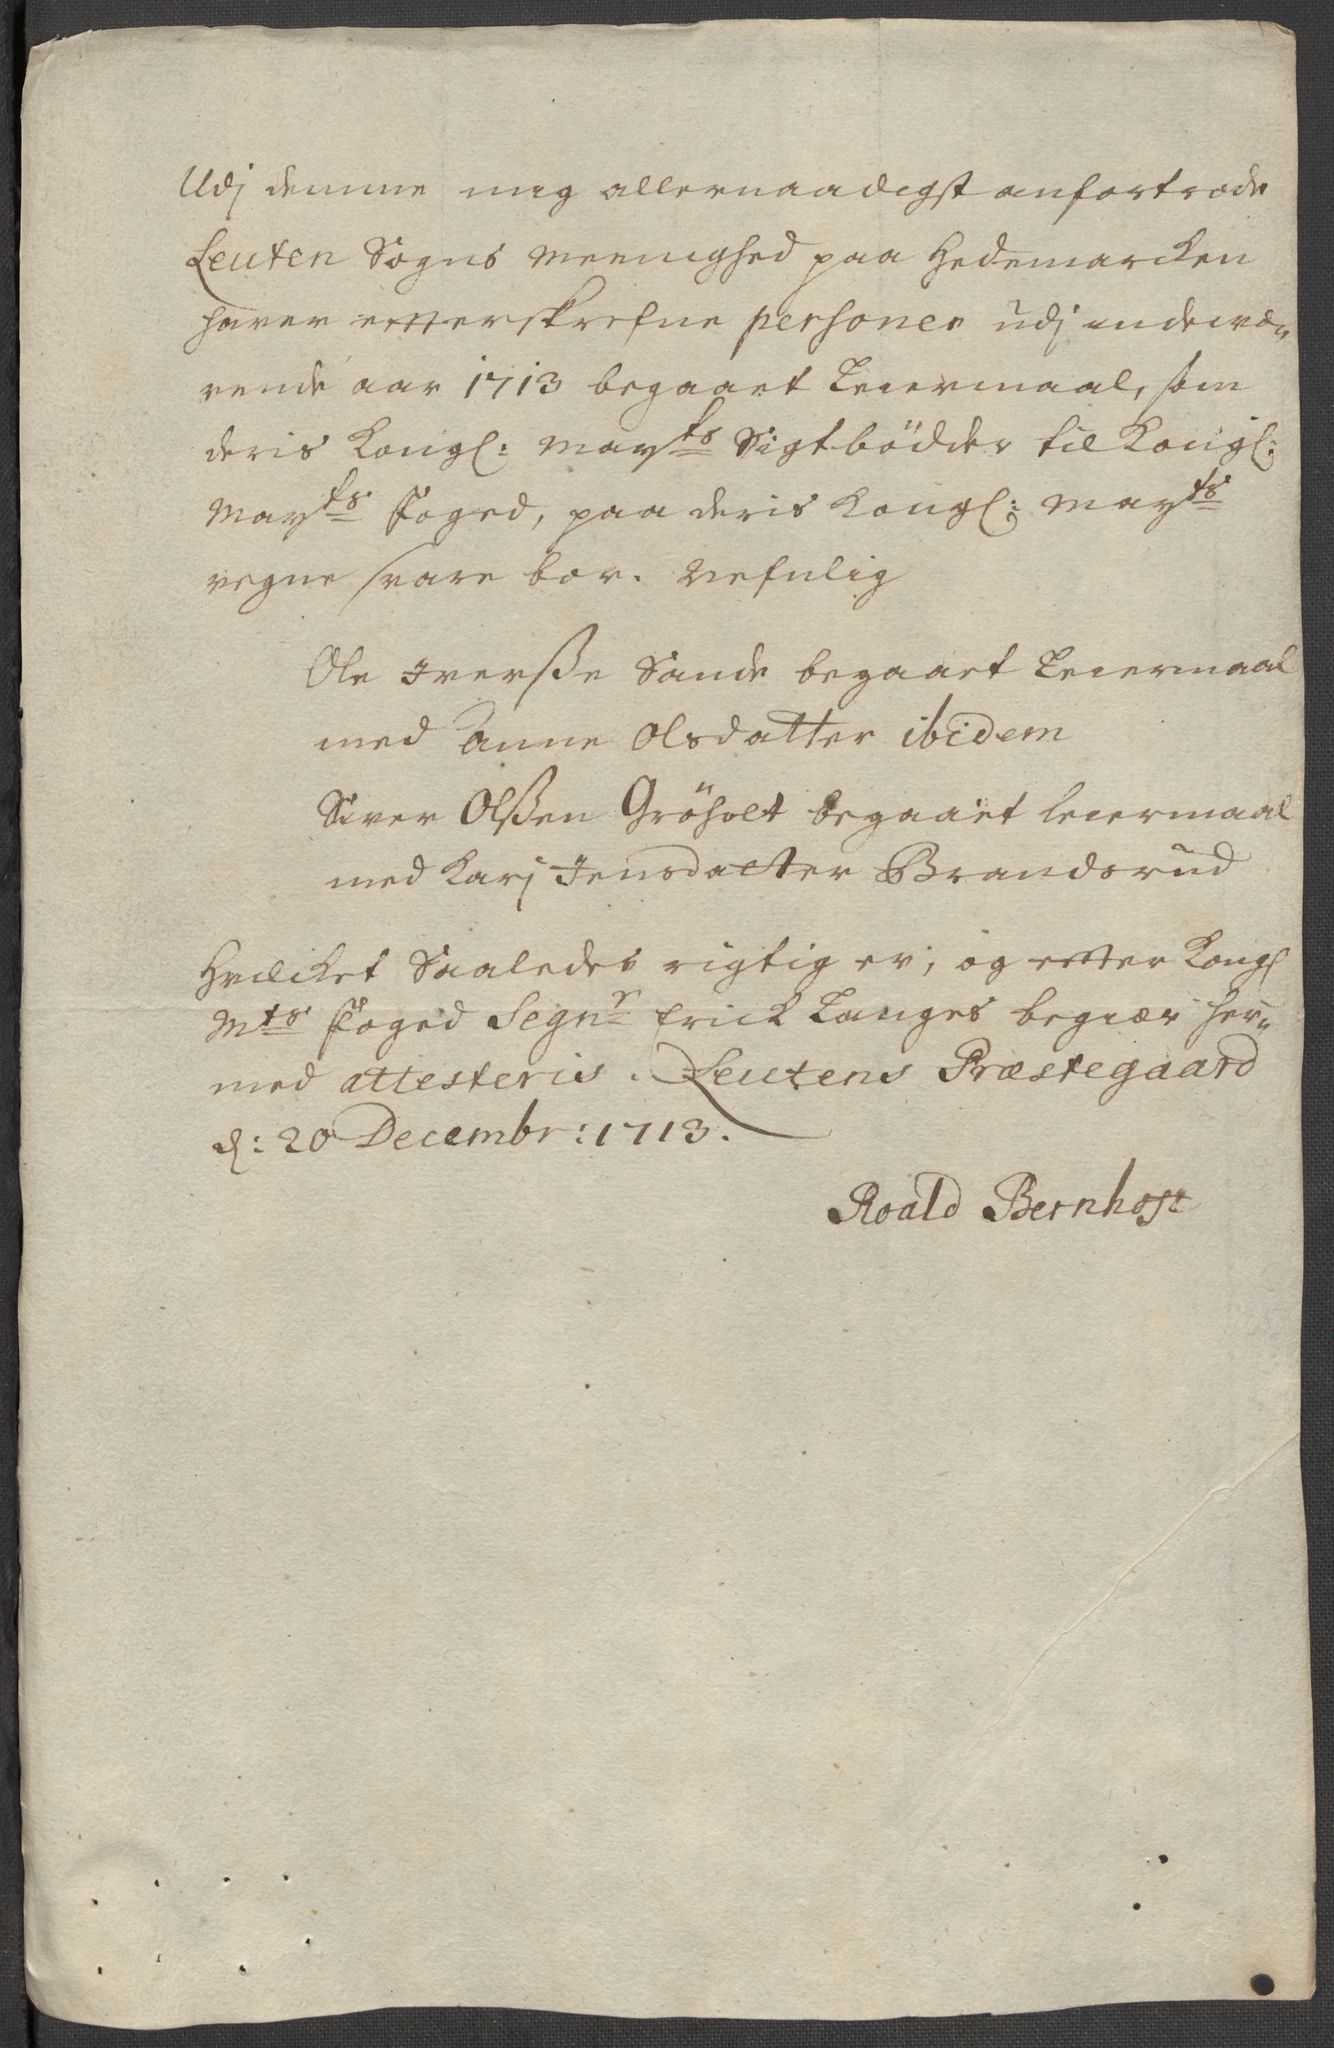 Udj denne mig allernaadigst anfortrode
Leuten Sogns meenighed paa Hedemarcken
hafver efterskrefne personer udj indewæ„
rende aar 1713 begaaet Leiermaal, som
deris Kongl: Mayts Sigtbödder til Kongl:
Mayts Foged, paa deris Kongl: Mayts
vegne svare bør. Nefnlig
Ole Iverße Sande begaaet Leiermaal
med Anne Olsdatter ibidem
Siver Olßen Gröholt begaaet leiermaal
med Karj Jensdatter Brandsrud
Hvilcket Saaledes rigtig er, og efter Kongl
Mts Foged Segnr Erick Langes begiær her„
med attesteris. Leutens Præstegaard
d: 20 Decembr: 1713.
Roald Bernhoft